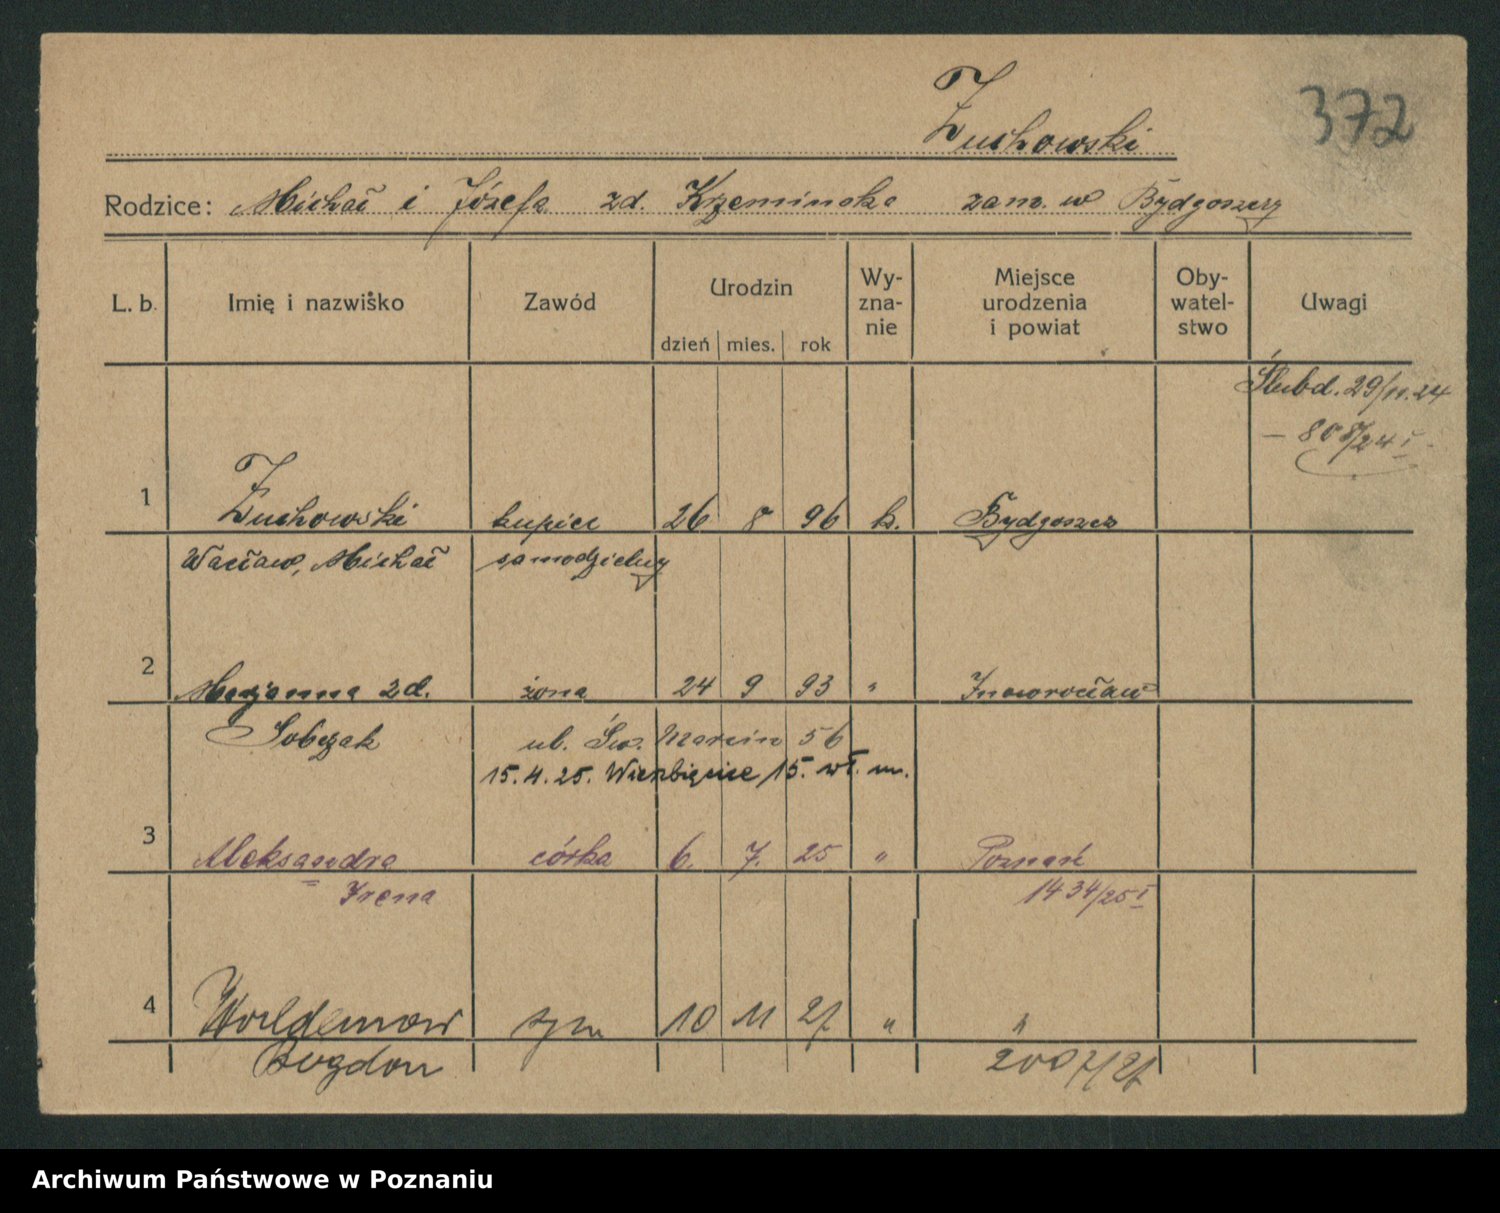 Żuchowski
372
Rodzice: Michał i Józefa zd. Krzemińska zam. w Bydgoszczy
L. b. Imię i nazwisko Zawód Urodzin dzień mies. rok Wyznanie Miejsce urodzenia i powiat Obywatelstwo Uwagi
Ślub d. 29/11.24
— 808/24 I
1 Żuchowski kupiec 26 8 96 k. Bydgoszcz
Wacław, Michał samodzielny
2 Marjanna zd. żona 24 9 93 " Inowrocław
Sobczak ul. Św. Marcin 56
15.4.25. Wierzbięcice 15. wł. m.
3 Aleksandra córka 6. 7. 25 " Poznań
Irena 1434/25 I
4 Woldemar syn 10 11 27 " "
Bogdan 2007/27
Archiwum Państwowe w Poznaniu